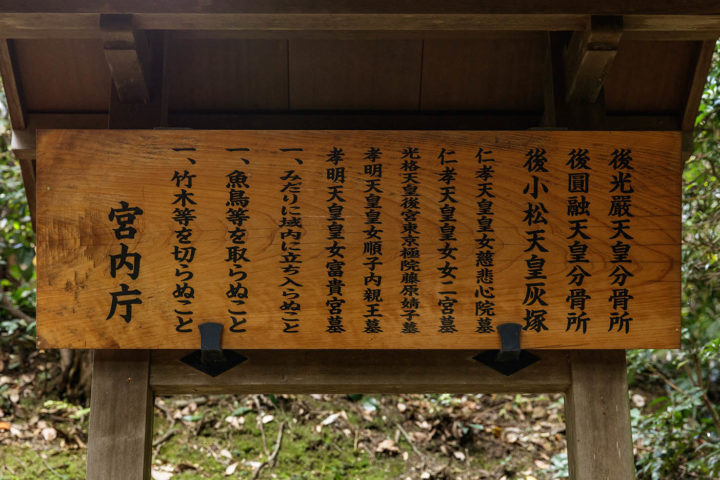 後光嚴天皇分骨所
後圓融天皇分骨所
後小松天皇灰塚
仁孝天皇皇女慈悲心院墓
仁孝天皇皇女女二宮墓
光格天皇後宮東京極院藤原婧子墓
孝明天皇皇女順子内親王墓
孝明天皇皇女富貴宮墓
一、みだりに域内に立ち入らぬこと
一、魚鳥等を取らぬこと
一、竹木等を切らぬこと
宮内庁